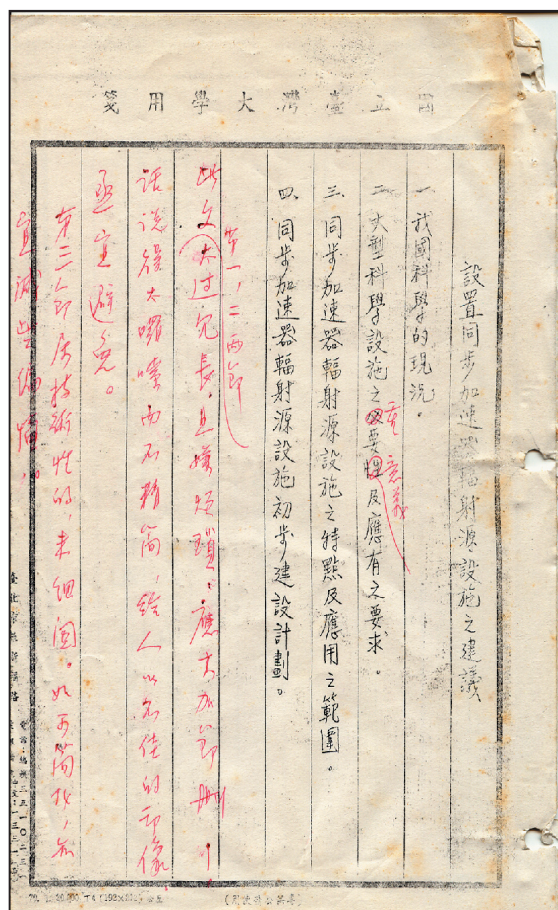 國立臺灣大學用箋
設置同步加速器輻射源設施之建議
一 我國科學的現況。
二 大型科學設施之必要性及應有之要求。
重 意義
三 同步加速器輻射源設施之特點及應用之範圍。
四 同步加速器輻射源設施初步建設計劃。
第一，二兩節
此文太过冗長，且嫌煩瑣。應大加節刪，
話說得太囉嗦而不精简，給人以不佳的印像
亟宜避免。
第三節屬技術性的，未细閱。如可简扼，亦
宜減些編幅。